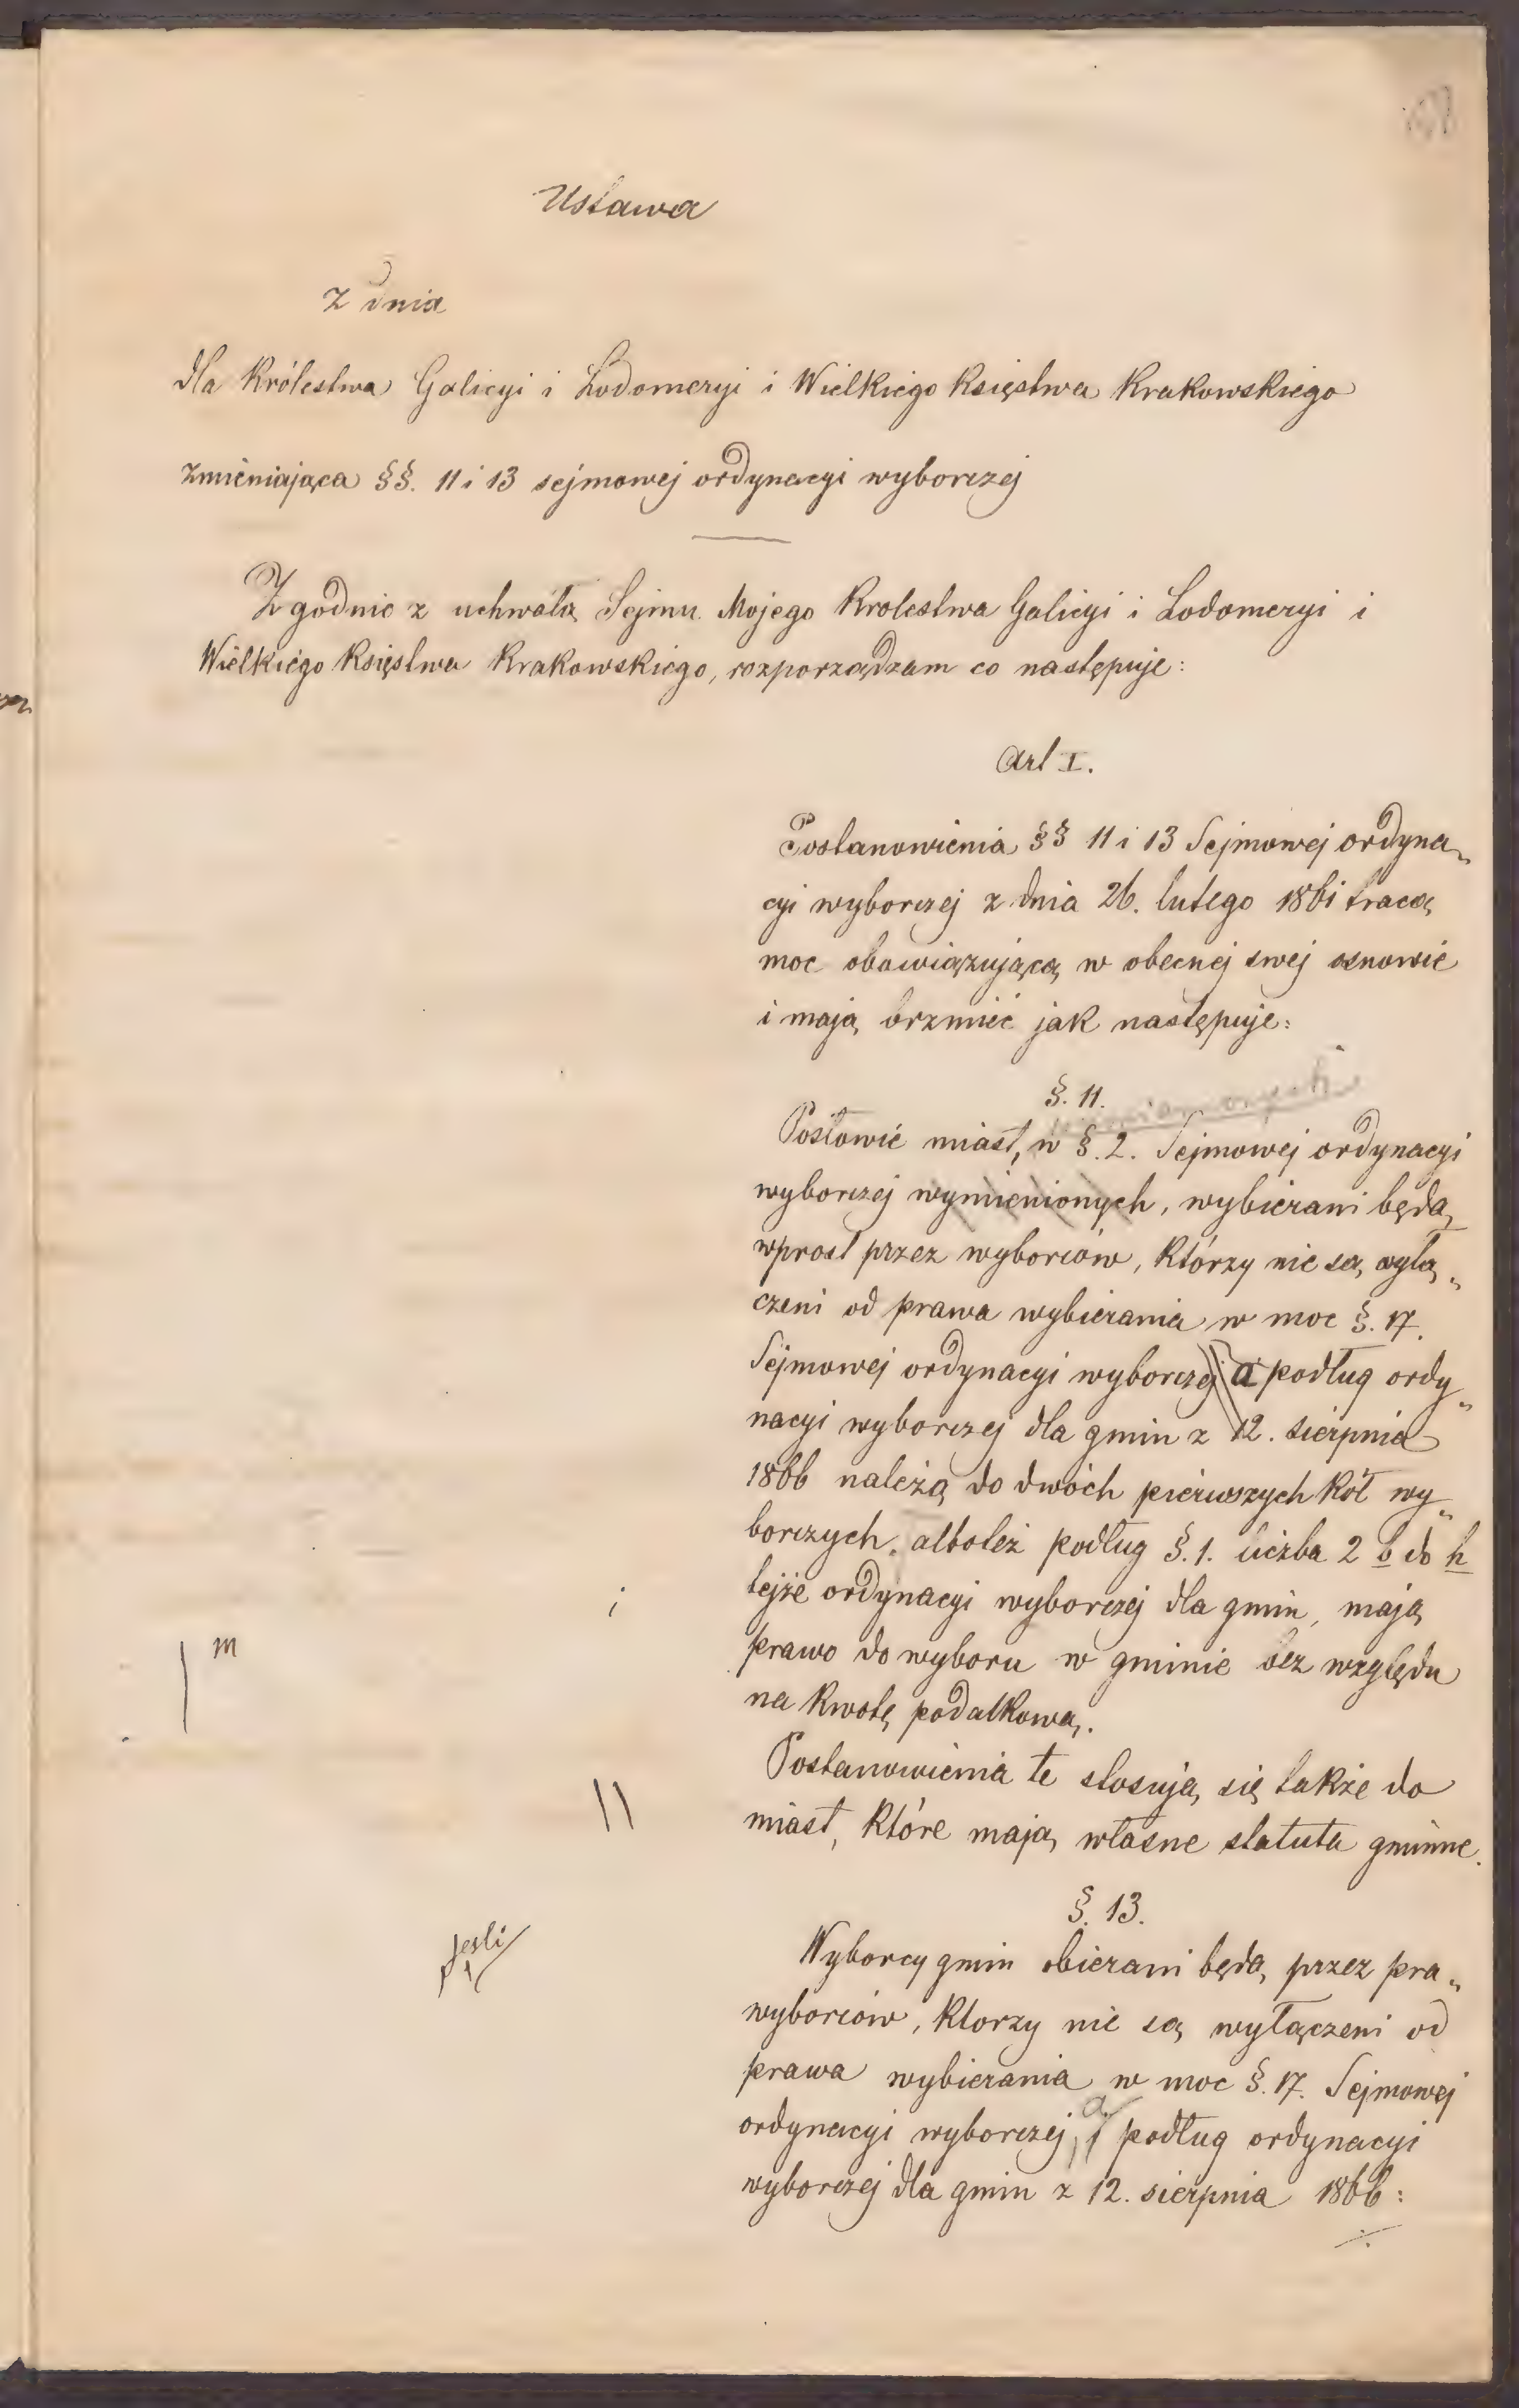 Ustawa
z dnia
dla Królestwa Galicyi i Lodomeryi i Wielkiego Księstwa Krakowskiego
zmieniająca §§. 11 i 13 sejmowej ordynacyi wyborczej
Zgodnie z uchwałą Sejmu Mojego Krolestwa Galicyi i Lodomeryi i
Wielkiego Księstwa Krakowskiego, rozporządzam co następuje:
Art I.
Postanowienia §§ 11 i 13 Sejmowej ordyna„
cyi wyborczej z dnia 26. lutego 1861 tracą
moc obowiązującą w obecnej swej osnowie
i mają brzmieć jak następuje:
§. 11.
wymienionych
Posłowie miast, w §. 2. Sejmowej ordynacyi
wyborczej wymienionych, wybierani będą
wprost przez wyborców, którzy nie są wyłą„
czeni od prawa wybierania w moc §. 17.
Sejmowej ordynacyi wyborczej a podług ordy„
nacyi wyborczej dla gmin z 12. sierpnia
1866 należą do dwóch pierwszych kół wy„
borczych, albo też podług §. 1. liczba 2 b do h
tejże ordynacyi wyborczej dla gmin, mają
i
prawo do wyboru w gminie bez względu
m
na kwotę podatkową.
Postanowienia te stosują się także do
miast, które mają własne statuta gminne.
§. 13.
Wyborcy gmin obierani będą przez pra„
jeśli
wyborców, którzy nie są wyłączeni od
prawa wybierania w moc §. 17. Sejmowej
a
ordynacyi wyborczej, i podług ordynacyi
wyborczej dla gmin z 12. sierpnia 1866:
./.